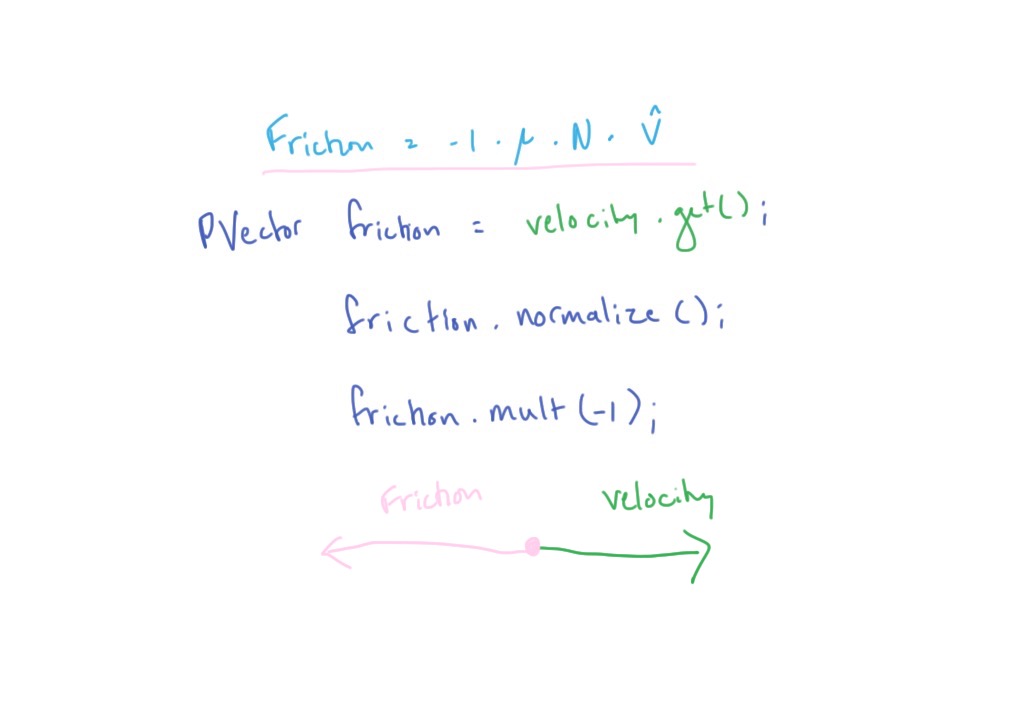 Friction = -1 . μ . N . V̂
PVector friction = velocity.get();
friction.normalize();
friction.mult(-1);
Friction velocity